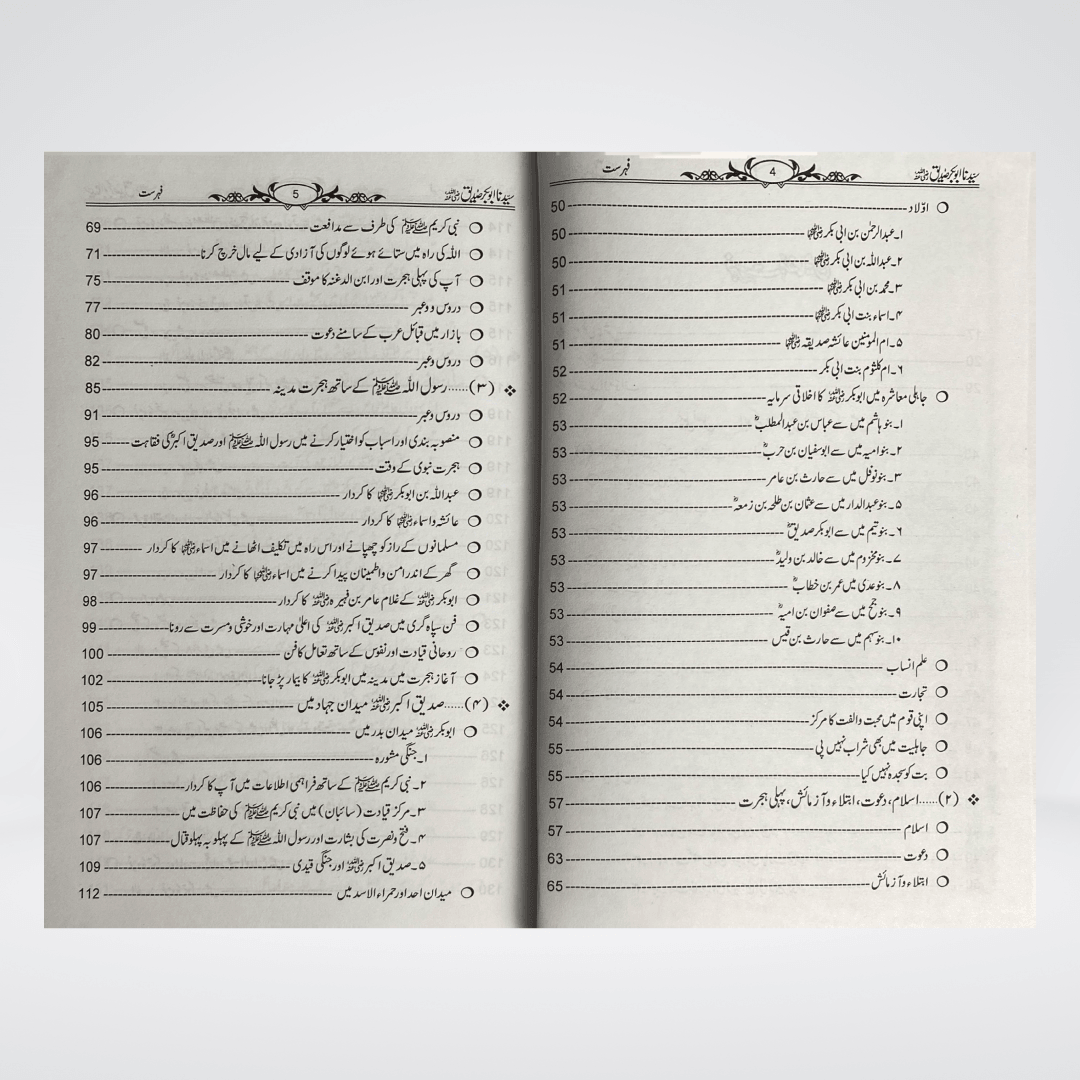 سیدنا ابوبکر صدیق رضی اللہ عنہ 4 فہرست
اوّلاد 50
۱۔عبدالرحمٰن بن ابی بکر رضی اللہ عنہما 50
۲۔عبداللہ بن ابی بکر رضی اللہ عنہما 50
۳۔محمد بن ابی بکر رضی اللہ عنہما 51
۴۔اسماء بنت ابی بکر رضی اللہ عنہما 51
۵۔ام المومنین عائشہ صدیقہ رضی اللہ عنہا 51
۶۔ام کلثوم بنت ابی بکر 52
جاہلی معاشرہ میں ابوبکر رضی اللہ عنہ کا اخلاقی سرمایہ 52
۱۔بنو ہاشم میں سے عباس بن عبدالمطلبؓ 53
۲۔بنو امیہ میں سے ابوسفیان بن حربؓ 53
۳۔بنو نوفل میں سے حارث بن عامر 53
۵۔بنو عبدالدار میں سے عثمان بن طلحہ بن زمعہؓ 53
۶۔بنو تیم میں سے ابوبکر صدیقؓ 53
۷۔بنو مخزوم میں سے خالد بن ولیدؓ 53
۸۔بنو عدی میں عمر بن خطابؓ 53
۹۔بنو جمح میں سے صفوان بن امیہؓ 53
۱۰۔بنو سہم میں سے حارث بن قیس 53
علم انساب 54
تجارت 54
اپنی قوم میں محبت والفت کا مرکز 54
جاہلیت میں بھی شراب نہیں پی 55
بت کو سجدہ نہیں کیا 55
(۲)......اسلام، دعوت، ابتلاء و آزمائش، پہلی ہجرت 57
اسلام 57
دعوت 63
ابتلاء و آزمائش 65
سیدنا ابوبکر صدیق رضی اللہ عنہ 5 فہرست
نبی کریم ﷺ کی طرف سے مدافعت 69
اللہ کی راہ میں ستائے ہوئے لوگوں کی آزادی کے لیے مال خرچ کرنا 71
آپ کی پہلی ہجرت اور ابن الدغنہ کا موقف 75
دروس و وعبر 77
بازار میں قبائل عرب کے سامنے دعوت 80
دروس وعبر 82
(۳)......رسول اللہ ﷺ کے ساتھ ہجرت مدینہ 85
دروس وعبر 91
منصوبہ بندی اور اسباب کو اختیار کرنے میں رسول اللہ ﷺ اور صدیق اکبرؓ کی فقاہت 95
ہجرت نبوی کے وقت 95
عبداللہ بن ابوبکر رضی اللہ عنہما کا کردار 96
عائشہ و اسماء رضی اللہ عنہما کا کردار 96
مسلمانوں کے راز کو چھپانے اور اس راہ میں تکلیف اٹھانے میں اسماء رضی اللہ عنہا کا کردار 97
گھر کے اندر امن و اطمینان پیدا کرنے میں اسماء رضی اللہ عنہا کا کردار 97
ابوبکر رضی اللہ عنہ کے غلام عامر بن فہیرہ رضی اللہ عنہ کا کردار 98
فن سپاہ گری میں صدیق اکبر رضی اللہ عنہ کی اعلیٰ مہارت اور خوشی و مسرت سے رونا 99
روحانی قیادت اور نفوس کے ساتھ تعامل کا فن 100
آغاز ہجرت میں مدینہ میں ابوبکر رضی اللہ عنہ کا بیمار پڑ جانا 102
(۴)......صدیق اکبر رضی اللہ عنہ میدان جہاد میں 105
ابوبکر رضی اللہ عنہ میدان بدر میں 106
۱۔جنگی مشورہ 106
۲۔نبی کریم ﷺ کے ساتھ فراہمی اطلاعات میں آپ کا کردار 106
۳۔مرکز قیادت (سائبان) میں نبی کریم ﷺ کی حفاظت میں 107
۴۔فتح و نصرت کی بشارت اور رسول اللہ ﷺ کے پہلو بہ پہلو قتال 107
۵۔صدیق اکبر رضی اللہ عنہ اور جنگی قیدی 109
میدان احد اور حمراء الاسد میں 112